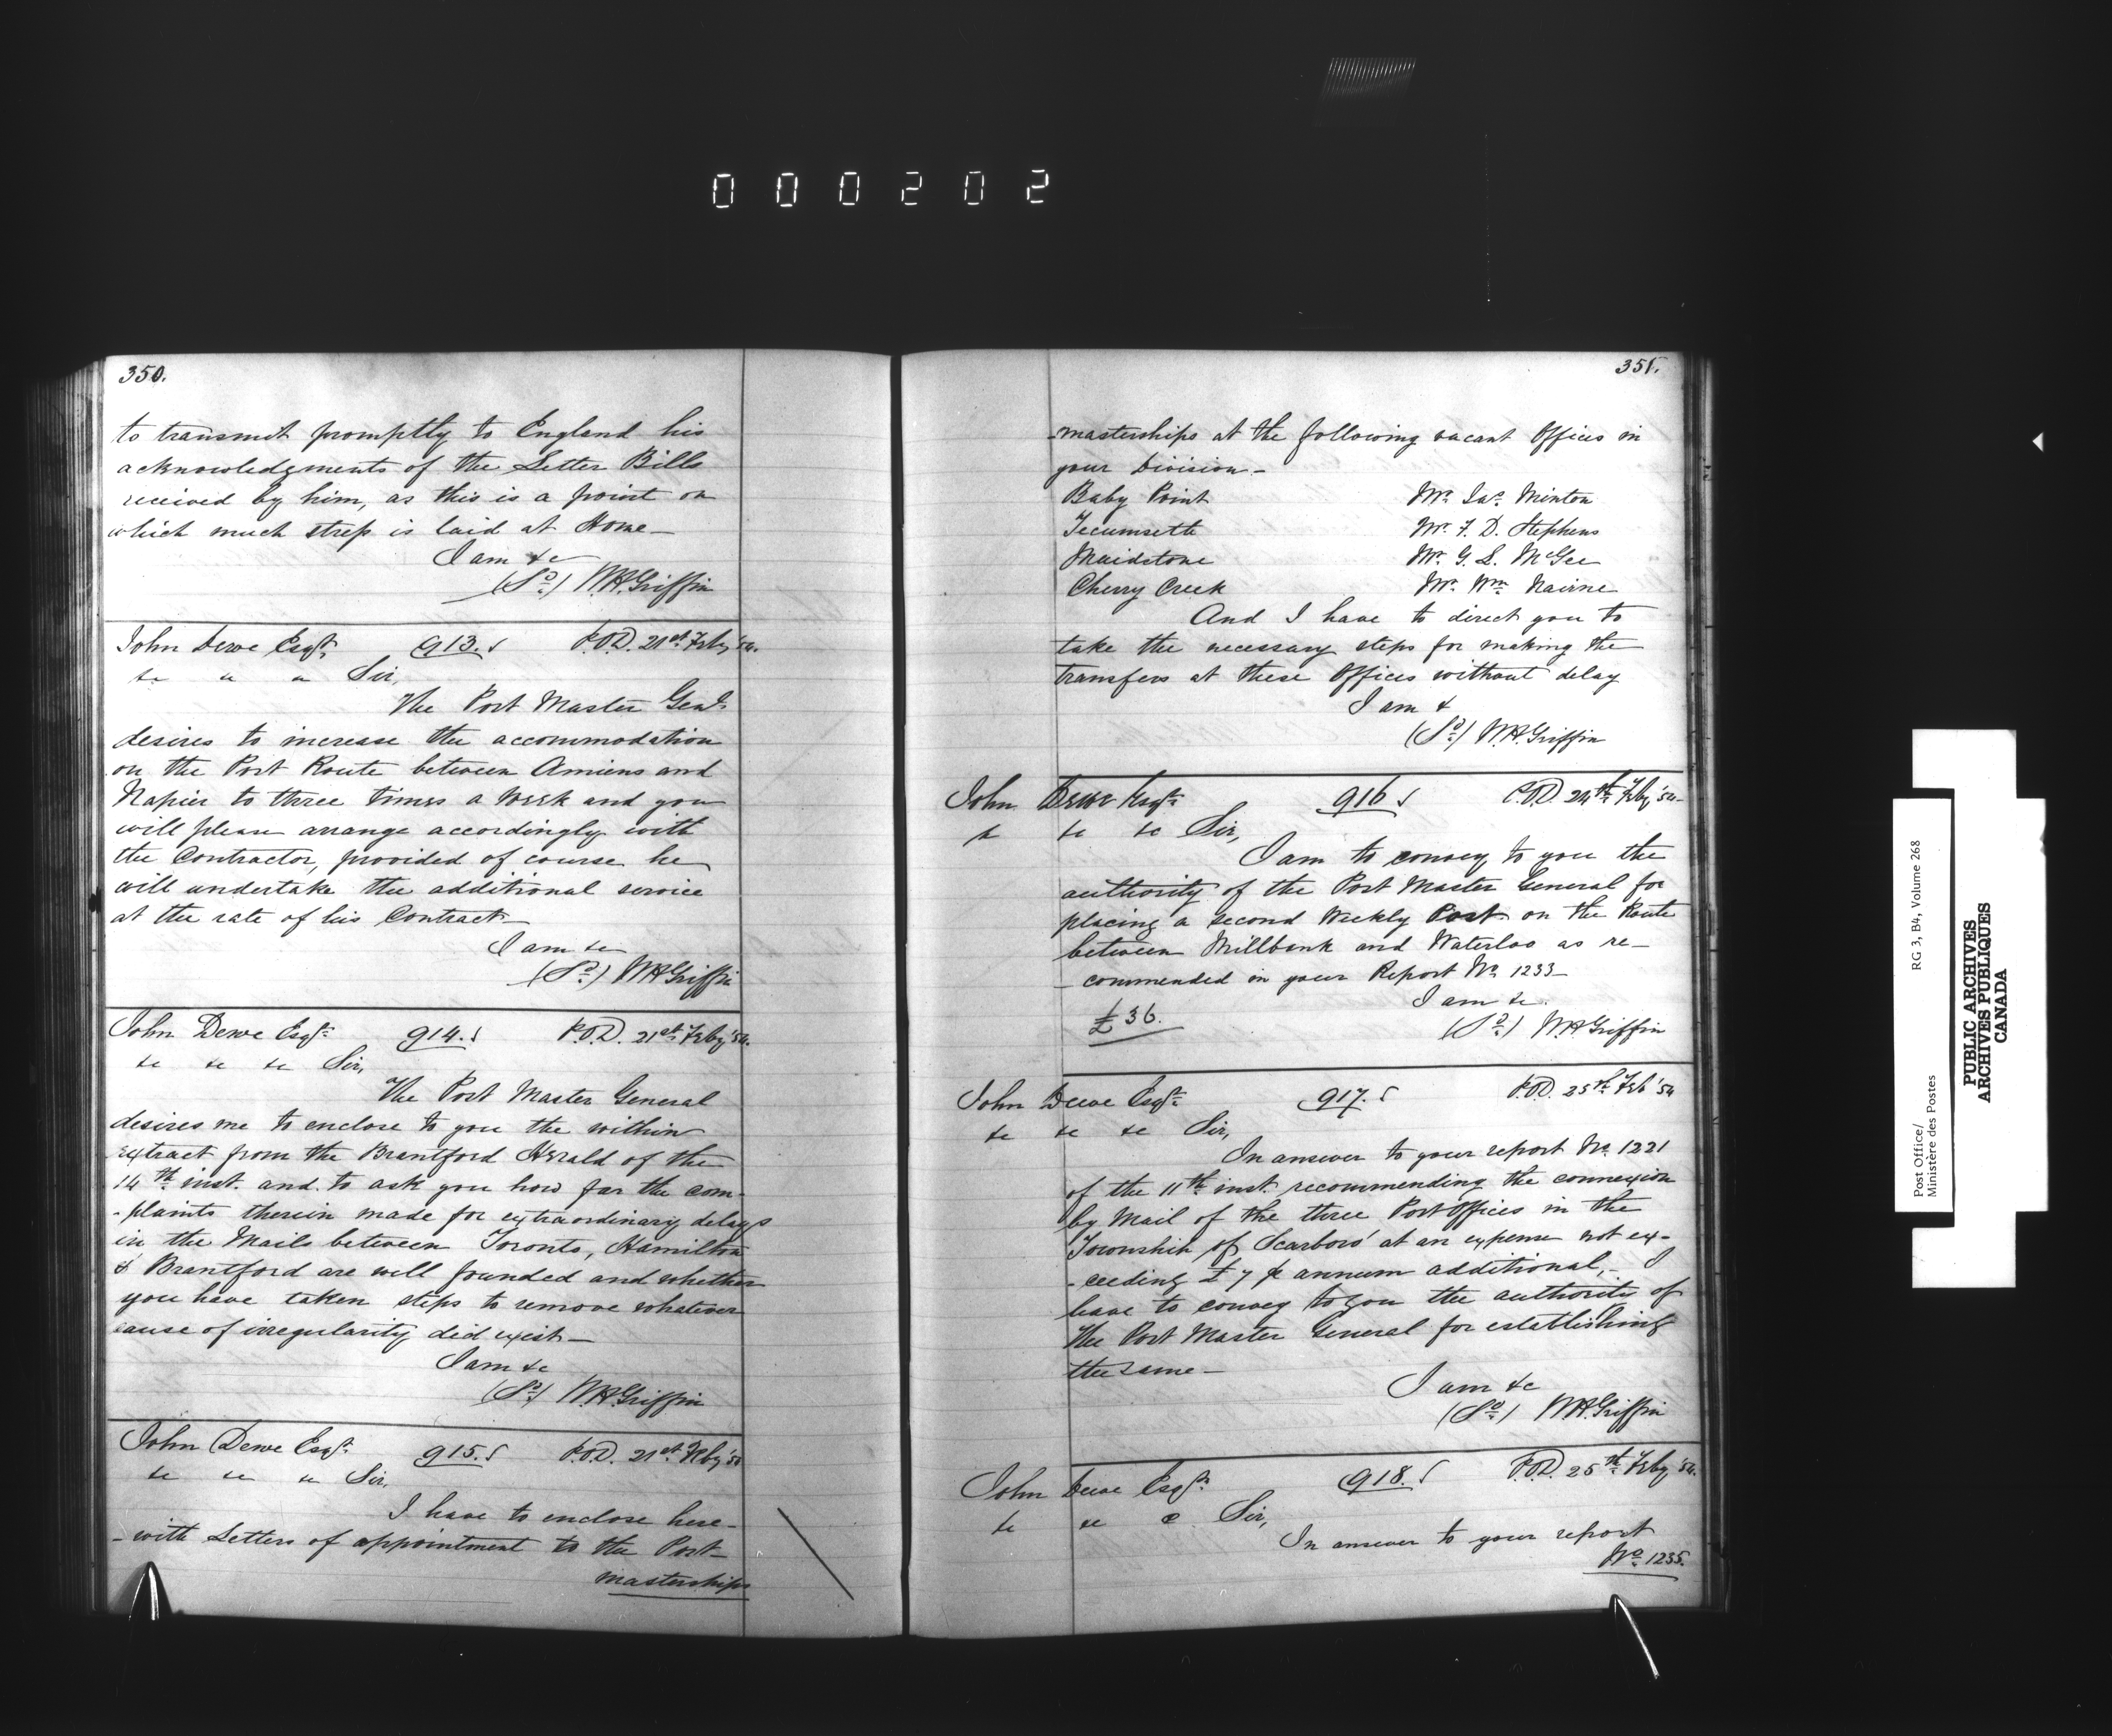 000202
350.
to transmit promptly to England his
acknowledgments of the Letter Bills
received by him, as this is a point on
which much stress is laid at Home—
I am &c
(Sd) W.H. Griffin
John Dewe Esqr. 913. P.O.D. 21st Feby '54.
&c " " Sir,
The Post Master Genl.
desires to increase the accommodation
on the Post Route between Amiens and
Napier to three times a Week and you
will please arrange accordingly with
the Contractor, provided of course he
will undertake the additional service
at the rate of his Contract
I am &c
(Sd) W.H. Griffin
John Dewe Esqr. 914. P.O.D. 21st Feby '54.
&c &c &c Sir,
The Post Master General
desires me to enclose to you the within
extract from the Brantford Herald of the
14th inst. and to ask you how far the com-
-plaints therein made for extraordinary delays
in the Mails between Toronto, Hamilton
& Brantford are well founded and whether
you have taken steps to remove whatever
cause of irregularity did exist—
I am &c
(Sd) W.H. Griffin
John Dewe Esqr. 915. P.O.D. 21st Feby '54
&c &c &c Sir,
I have to enclose here-
-with Letters of appointment to the Post-
masterships
351.
-masterships at the following vacant Offices in
your Division—
Baby Point Mr. Jas. Minton
Tecumseth Mr. F. D. Stephens
Maidstone Mr. G. L. McGee
Cherry Creek Mr. Wm. Nairne
And I have to direct you to
take the necessary steps for making the
transfers at these Offices without delay
I am &
(Sd) W.H. Griffin
John Dewe Esqr. 916 P.O.D. 24th Feby '54-
& &c &c Sir,
I am to convey to you the
authority of the Post Master General for
placing a second Weekly Post on the Route
between Millbank and Waterloo as re-
-commended in your Report No. 1233—
I am &c.
£36. (Sd) W.H. Griffin
John Dewe Esqr. 917. P.O.D. 25th Feb '54
&c &c &c Sir,
In answer to your report No. 1221
of the 11th inst. recommending the connexion
by Mail of the three Post Offices in the
Township of Scarboro' at an expense not ex-
-ceeding £7 pr annum additional,- I
have to convey to you the authority of
the Post Master General for establishing
the same—
I am &c
(Sd) W.H. Griffin
John Dewe Esqr. 918. P.O.D. 25th Feby '54.
&c &c c Sir,
In answer to your report
No. 1235.
Post Office/ RG 3, B4, Volume 268
Ministère des Postes
PUBLIC ARCHIVES
ARCHIVES PUBLIQUES
CANADA